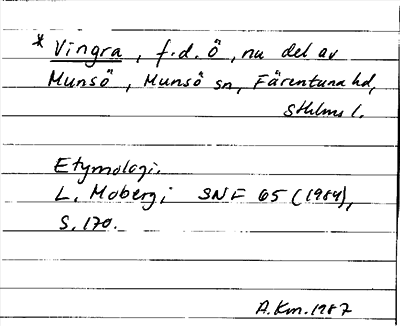 * Vingra, f.d. ö, nu del av
Munsö, Munsö sn, Färentuna hd,
Sthlms l.
Etymologi.
L. Moberg i SNF 65 (1984),
S. 170.
A.Km. 1987